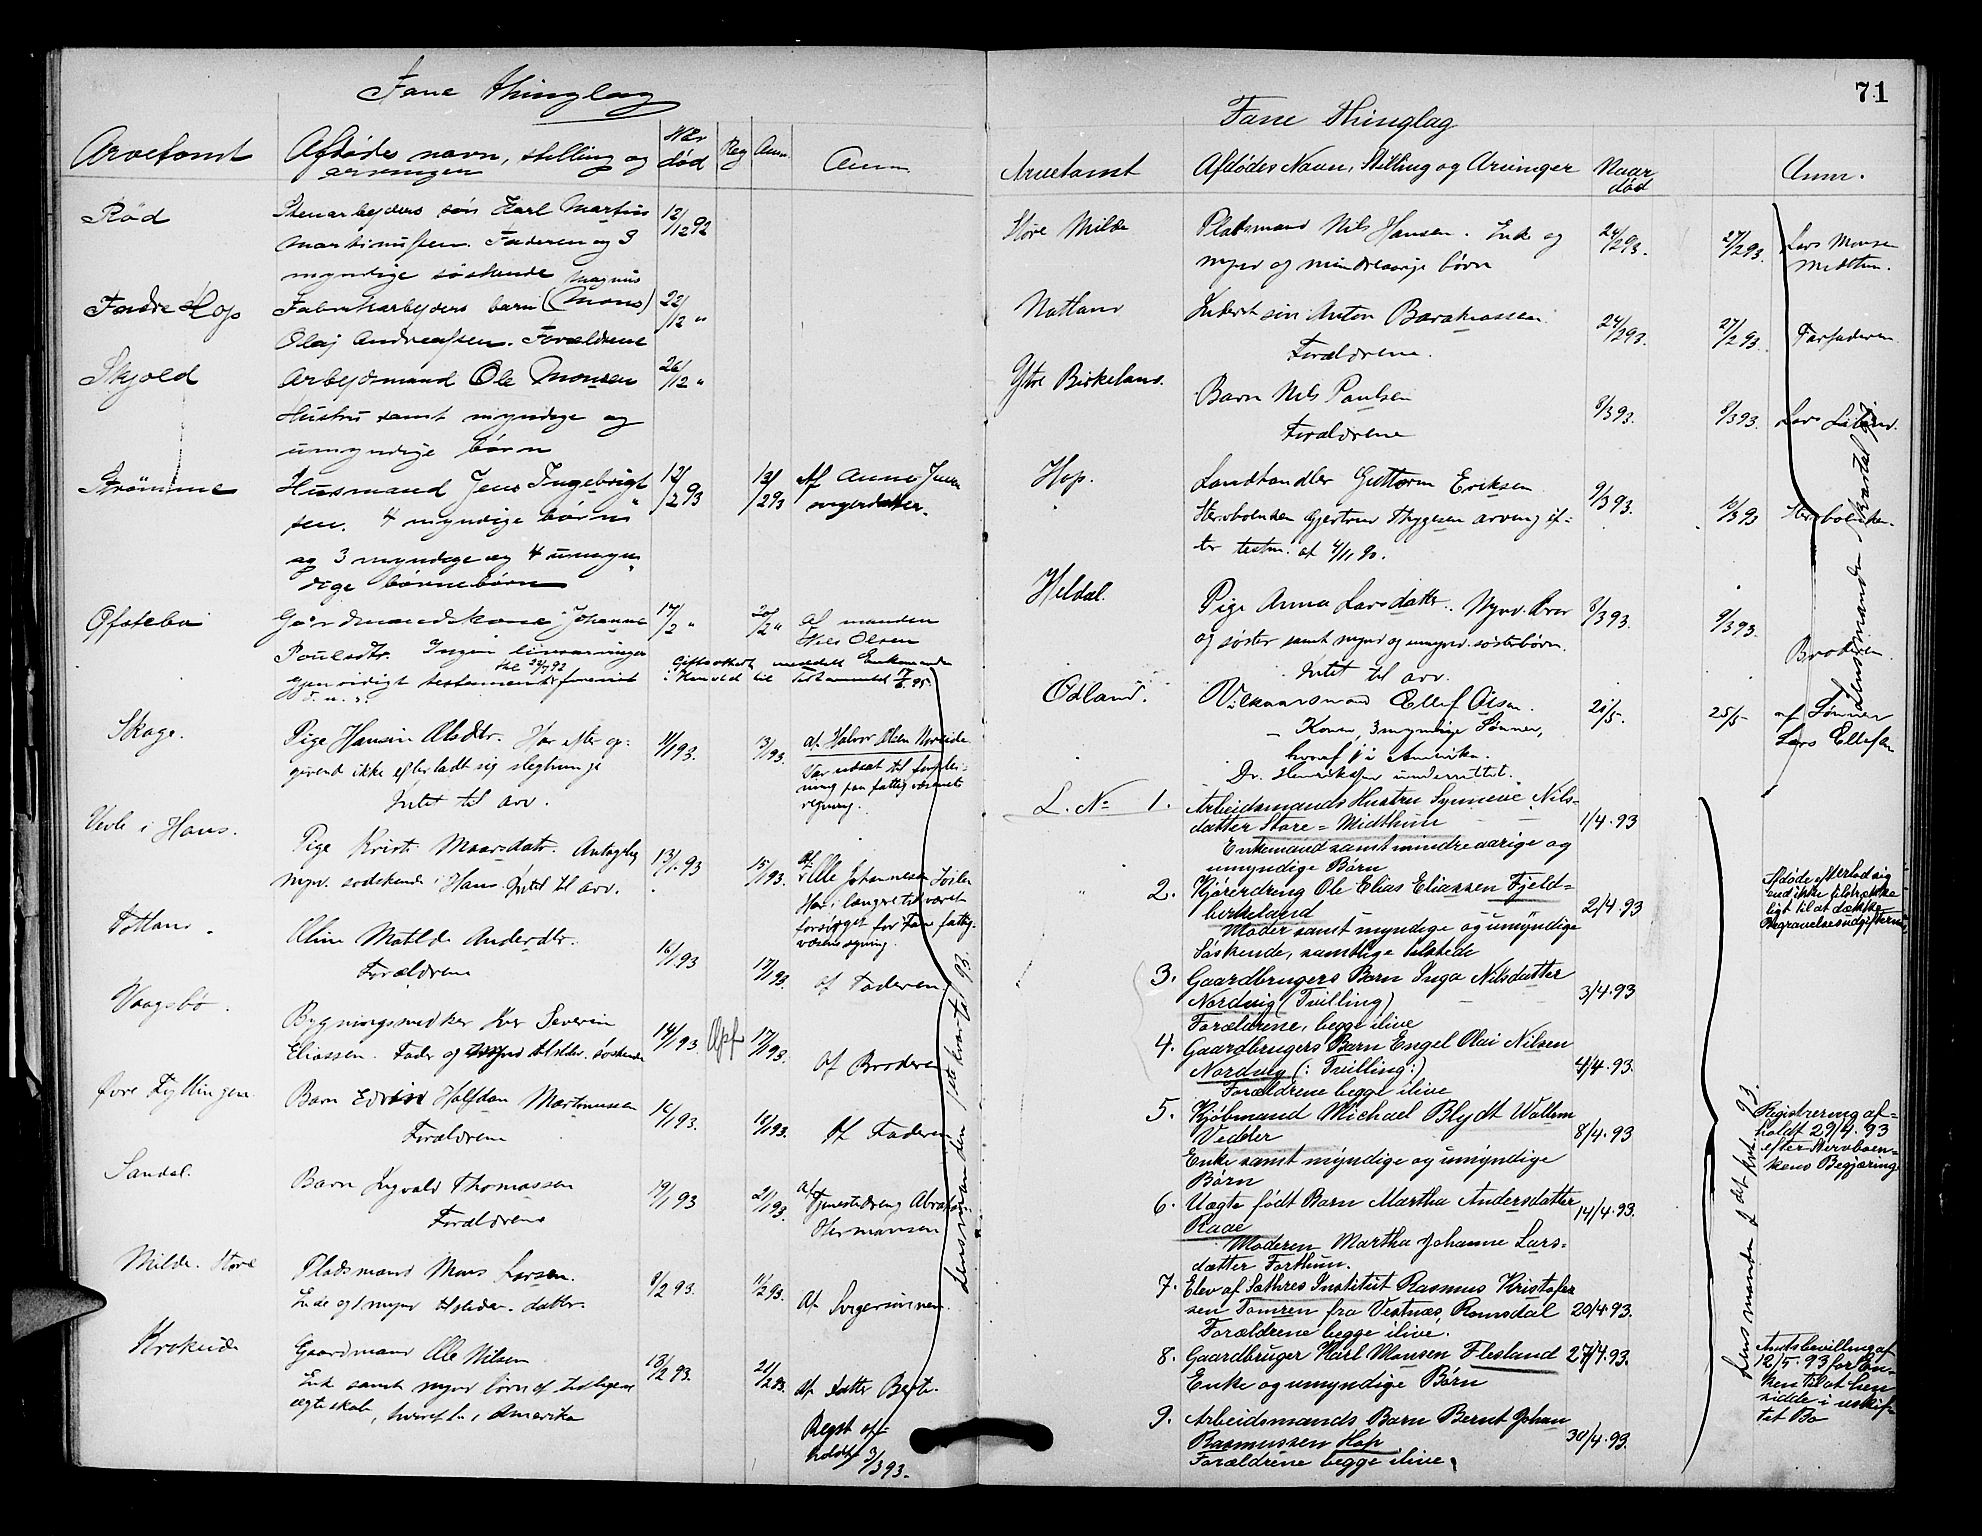 Fane Thinglag
Arvetomt
Afdødes navn, stilling og
arvinger
Når
død
Reg
Anm.
Anm
Rød
Stenarbejders søn Karl Martin
Martinussen. Faderen og 3
myndige søskende
12/12 92
Indre Hop
Magnus
Fabrikarbejders barn (Mons)
Olaj Andreassen. Forældrene
22/12 "
Skjold
Arbejdsmand Ole Monsen
Hustru samt myndige og
umyndige børn
26/12 "
Strømme
Husmand Jens Ingebrigt
sen. 4 myndige børn
og 3 myndige og 4 umyn
dige børnebørn
12/2 93
13/2 93
Af Anne Jens
Gårdmandskone Johanne
Poulsdtr. Ingen livsarvinger
gjensidigt testament
17/2 "
20/2 "
af manden
Nils Olsen
Skage.
Pige Hansine Olsdtr. Har efter op-
givend ikke efterladt sig slegtninge
Intet til arv.
11/1 93.
13/1 93.
af Halvor Olsen
Var udsat til forplei-
ning paa fattigvæsenets
regning.
Pige Kristi Maarsdatr. Antagelig
Intet til arv.
13/1 93
15/1 93.
af Ole Johannesen
Har i længre tid været
forsørget for Fane fattig-
væsens regning.
Totland.
Oline Matilde Andersdtr.
Forældrene
16/1 93
17/1 93.
af Faderen
Vaagsbø.
Bygningssnedker Iver Severin
Eliassen. Fader og
søskende
14/1 93.
17/1 93.
af Broderen
Øvre Fyllingen.
Barn Edvin Halfdan Martinussen
Forældrene
16/1 93.
19/1 93.
Af Faderen
Sandal.
Barn Ingvald Thomassen
Forældrene
19/1 93
21/1 93.
af
Tjenestedreng Abraham
Hermansen
Milde. Store
Pladsmand Mons Larsen.
8/2 93.
11/2 93.
Af Svigersønnen
Krokeide
Gaardmand Ole Nilsen
Enke samt mynd børn af tidligere
ægteskab, hvoraf en i Amerika
18/2 93.
21/2 93.
af datter Berte.
Regst af-
holdt 3/3 93.
Lensmanden 1ste kvartal 93.
71
Fane Thinglag
Arvetomt
Afdødes Navn, Stilling og Arvinger
Naar
død
Anm.
Store Milde
Pladsmand Nils Hansen. Enke og
mynd og mindreaarige børn
24/2 93.
27/2 93.
Lars Monsen
Midttun.
Natland
Inderst søn Anton
Forældrene.
24/2 93.
27/2 93.
Farfaderen
Ytre Birkeland.
Barn Nils Paulsen
Forældrene
8/3 93.
9/3 93.
Hop.
Landhandler Guttorm Eriksen
Stervboenken Gjertrud Thygesen arving ef-
ter testm. af 4/11 90.
9/3 93.
Stervboenken.
Heldal.
Pige Anna Larsdatter. Mynd. bror
og søster samt mynd og umynd. søsterbørn.
Intet til arv.
8/3 93.
9/3 93.
Broderen.
Ødland.
Vilkaarsmand Ellef Olsen.
Konen, 3 myndige Sønner,
hvoraf 1 i Amerika.
Dr. Henriksen underrettet.
21/5.
25/5
af Sønnen
Lars Ellefsen
L. No 1.
Arbeidsmands Hustru Synneve Nils-
datter Store-Midthun
Enkemand samt mindreaarige og
umyndige Børn
1/4.93
2. Kjøredreng Ole Elias Eliassen Fjeld-
birkeland
Moder samt myndige og umyndige
Søskende, samtlige tilstede
2/4.93
Afdøde efterlod sig
end ikke tilstrække
ligt til at dække
Begravelsesudgifterne
3. Gaardbrugers Barn Inga Nilsdatter
Nordvig (Tvilling)
Forældrene, begge ilive
3/4.93
4. Gaardbrugers Barn Engel Olai Nilsen
Nordvig (: Tvilling:)
Forældrene begge ilive
4/4.93.
5. Kjøbmand Michael Blydt Wallem
Vedeler
Enke samt myndige og umyndige
Børn
8/4.93
Registrering af-
holdt 29/4.93
efter Stervboen-
kens Begjæring
6. Uægte født Barn Martha Andersdatter
Raae
Moderen Martha Johanne Lars-
datter Forthun.
14/4.93.
7. Elev af Sathres Institut Rasmus Kristofer
sen Tomren fra Vestnæs, Romsdal
Forældrene begge ilive.
20/4.93.
8. Gaardbruger Karl Monsen Flesland
Enke og umyndige Børn
27/4.93.
Amtsbevilling af
12/5.93 for En-
ken til at hen
sidde i uskif-
tet Bo
9. Arbeidsmands Barn Bernt Johan
Rasmussen Hop
Forældrene begge ilive.
30/4.93.
Lensmanden 1 Kvartal 93
Lensmanden 2det kvt. 93.